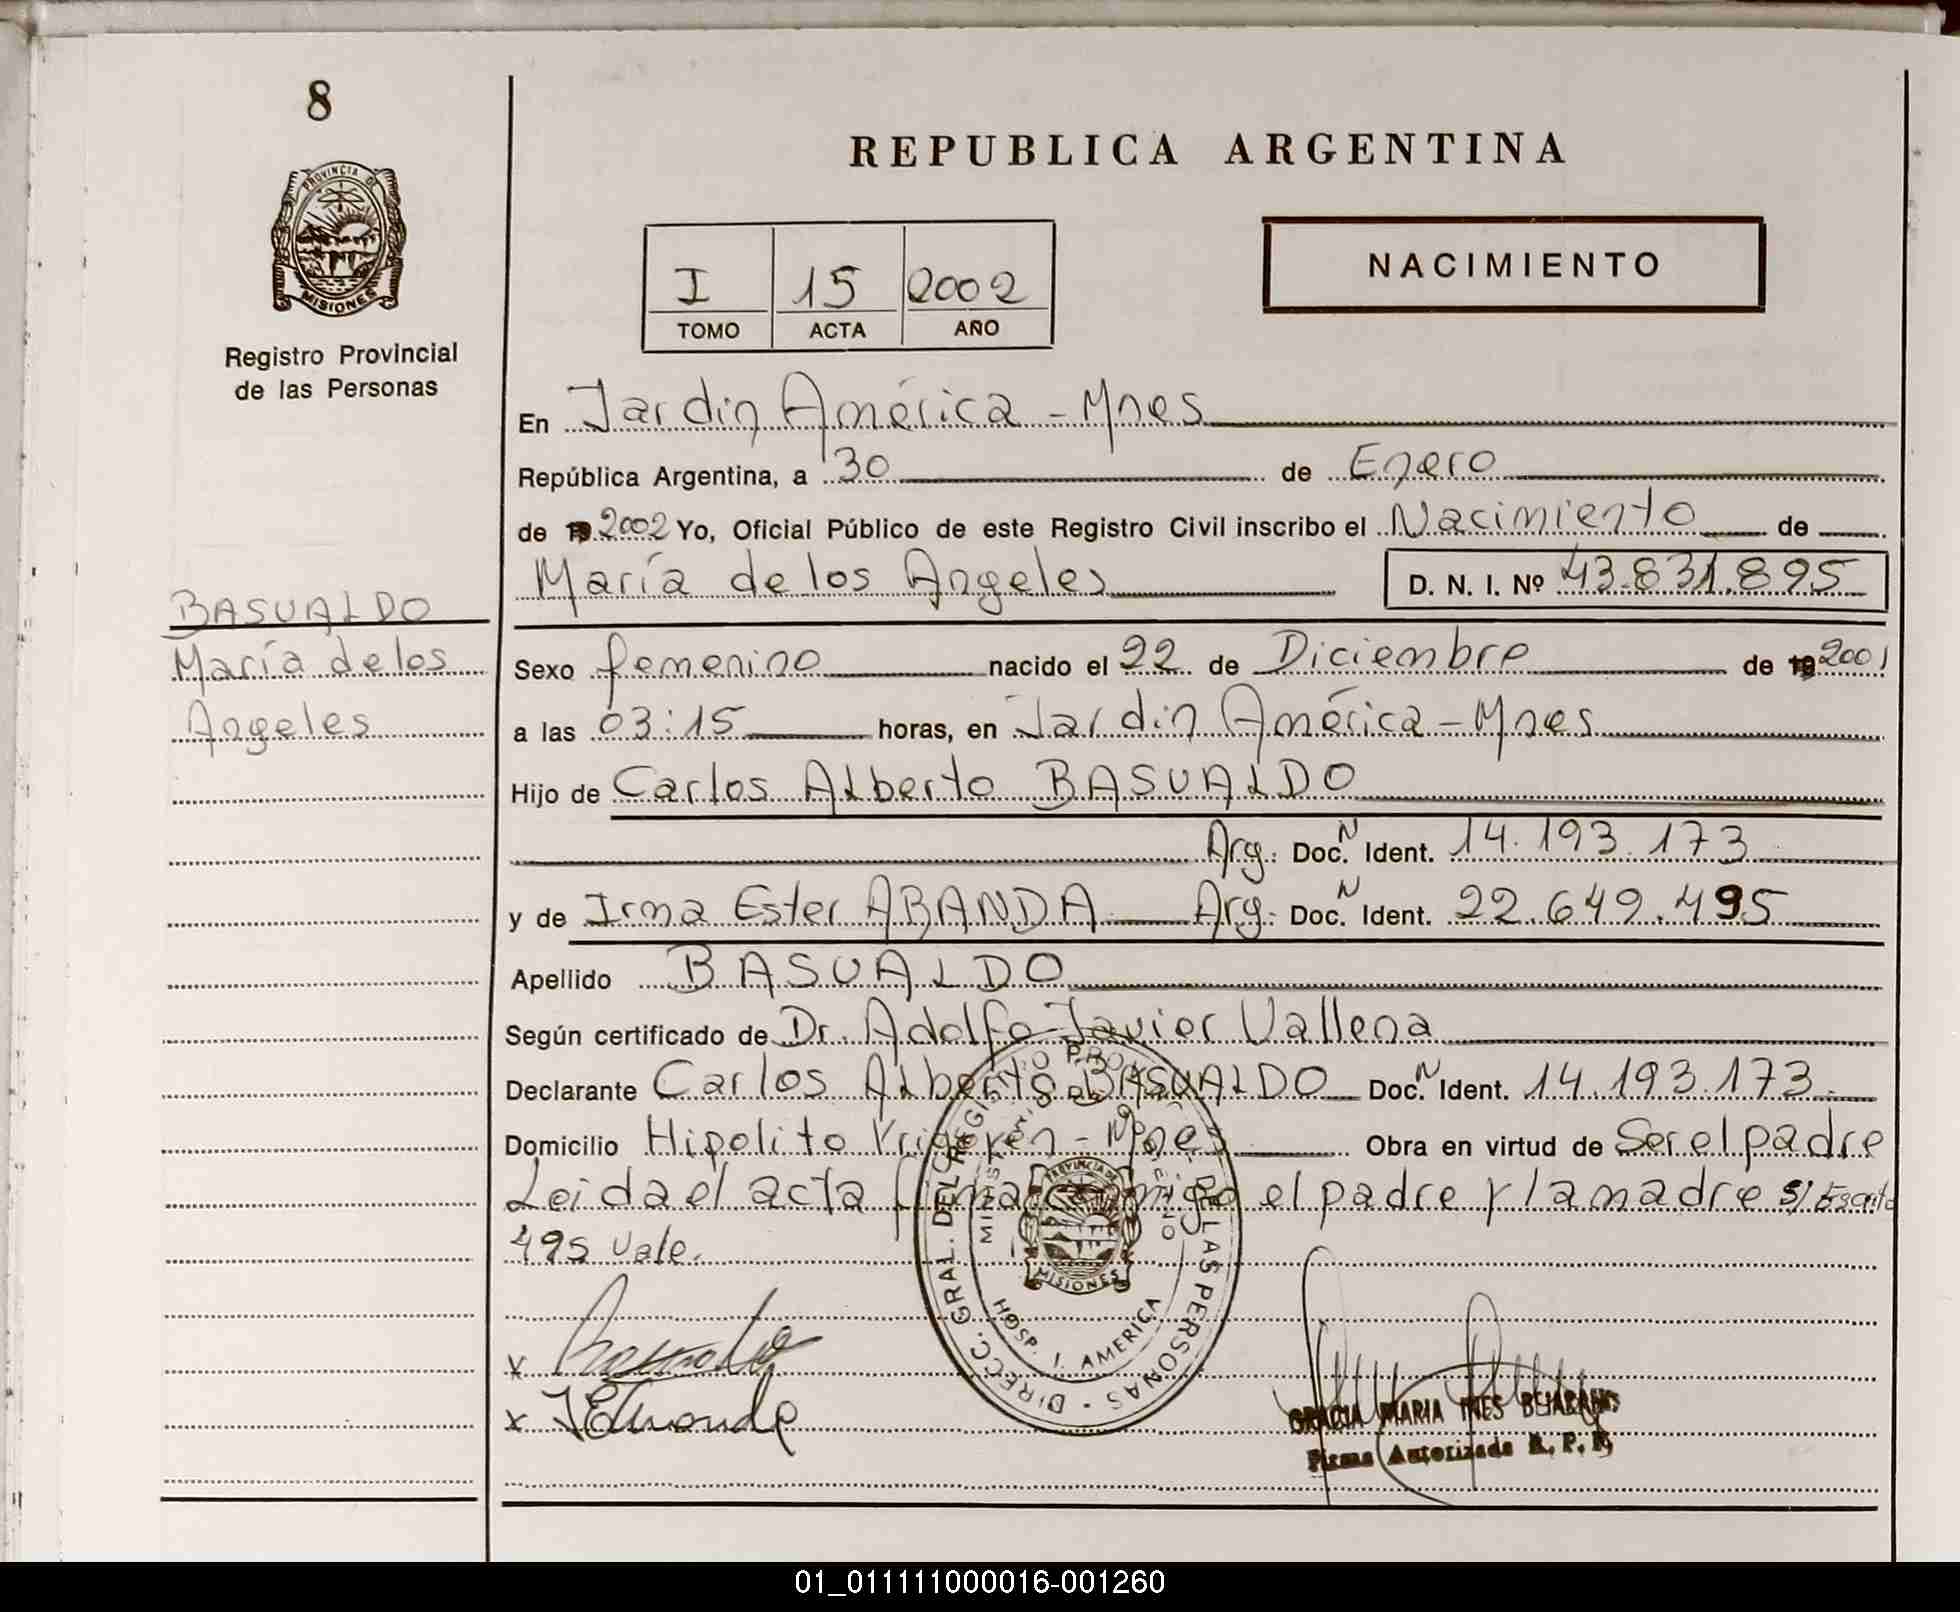 8
PROVINCIA DE
MISIONES
Registro Provincial
de las Personas
REPUBLICA ARGENTINA
I 15 2002
TOMO ACTA AÑO
NACIMIENTO
En Jardín América - Mnes
República Argentina, a 30 de Enero
de 19 2002 Yo, Oficial Público de este Registro Civil inscribo el Nacimiento de
María de los Angeles D. N. I. Nº 43.831.895
BASUALDO
María de los
Angeles
Sexo femenino nacido el 22 de Diciembre de 19 2001
a las 03:15 horas, en Jardín América - Mnes
Hijo de Carlos Alberto BASUALDO
Arg. Doc. N Ident. 14.193.173
y de Irma Ester ABANDA Arg. Doc. N Ident. 22.649.495
Apellido BASUALDO
Según certificado de Dr. Adolfo Javier Vallena
Declarante Carlos Alberto BASUALDO Doc. N Ident. 14.193.173
Domicilio Hipolito Yrigoyen - Mnes Obra en virtud de Ser el padre
Leida el acta firma conmigo el padre y la madre S/ Escrito
495 vale.
DIRECC. GRAL. DEL REGISTRO PROV. DE LAS PERSONAS
PROVINCIA DE
MISIONES
HOSP. J. AMERICA
x
x
GRACIA MARIA INES BEJARANO
Firma Autorizada R. P. P.
01_011111000016-001260